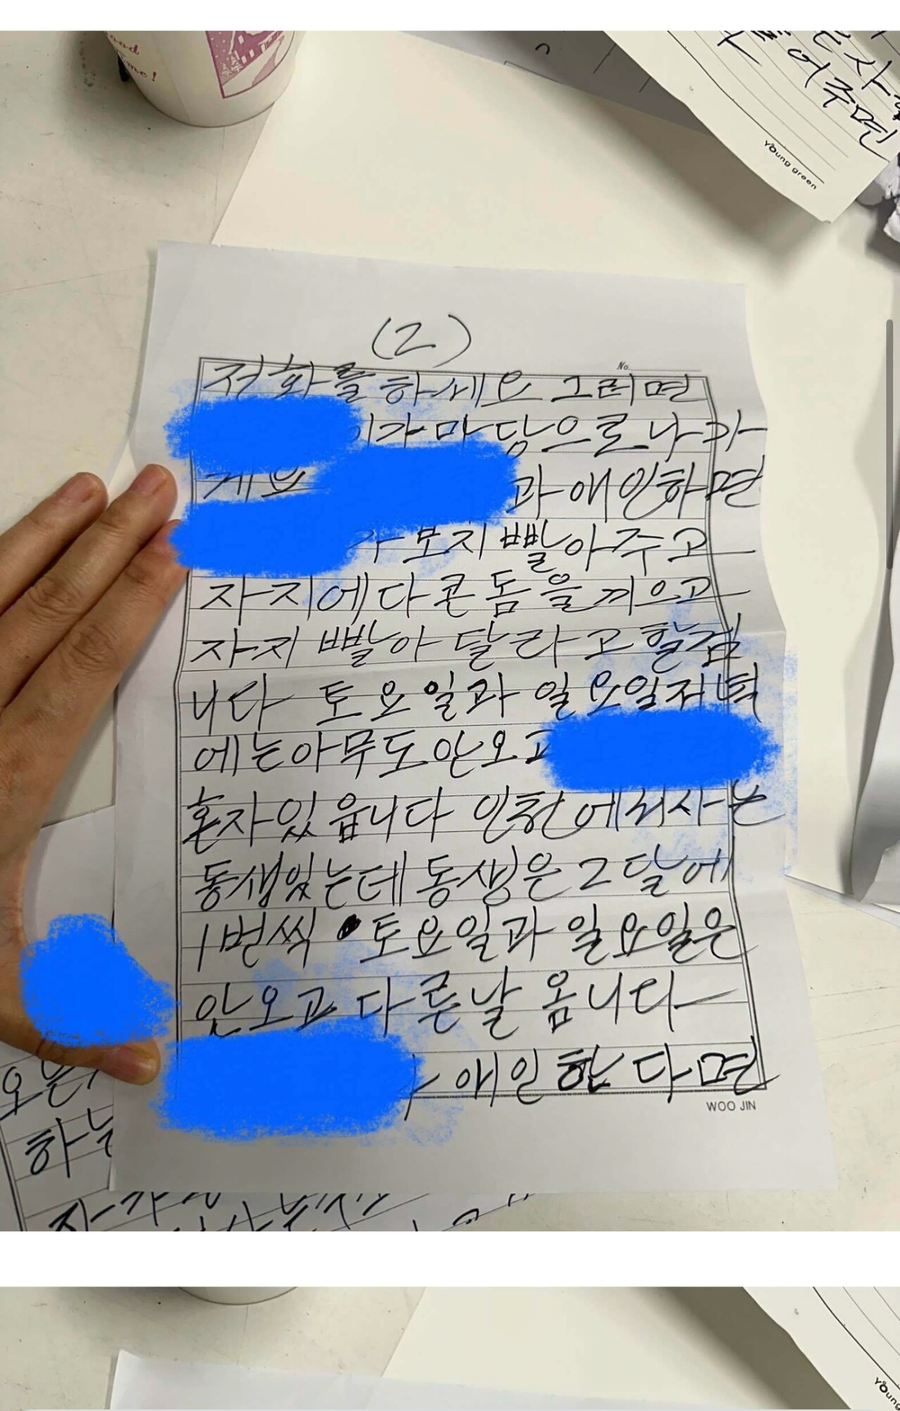 어주면
Young green
(2)
No.
전화를 하세요 그러면
이가 마당으로 나가
과 애인하면
가 보지 빨아주고
자지에다 콘돔을 끼우고
자지 빨아 달라고 할겁
니다 토요일과 일요일저녁
에는 아무도 안오고
혼자있읍니다 인천에서사는
동생있는데 동생은 2달에
1번씩 토요일과 일요일은
안오고 다른날 옵니다
애인한다면
WOO JIN
하는